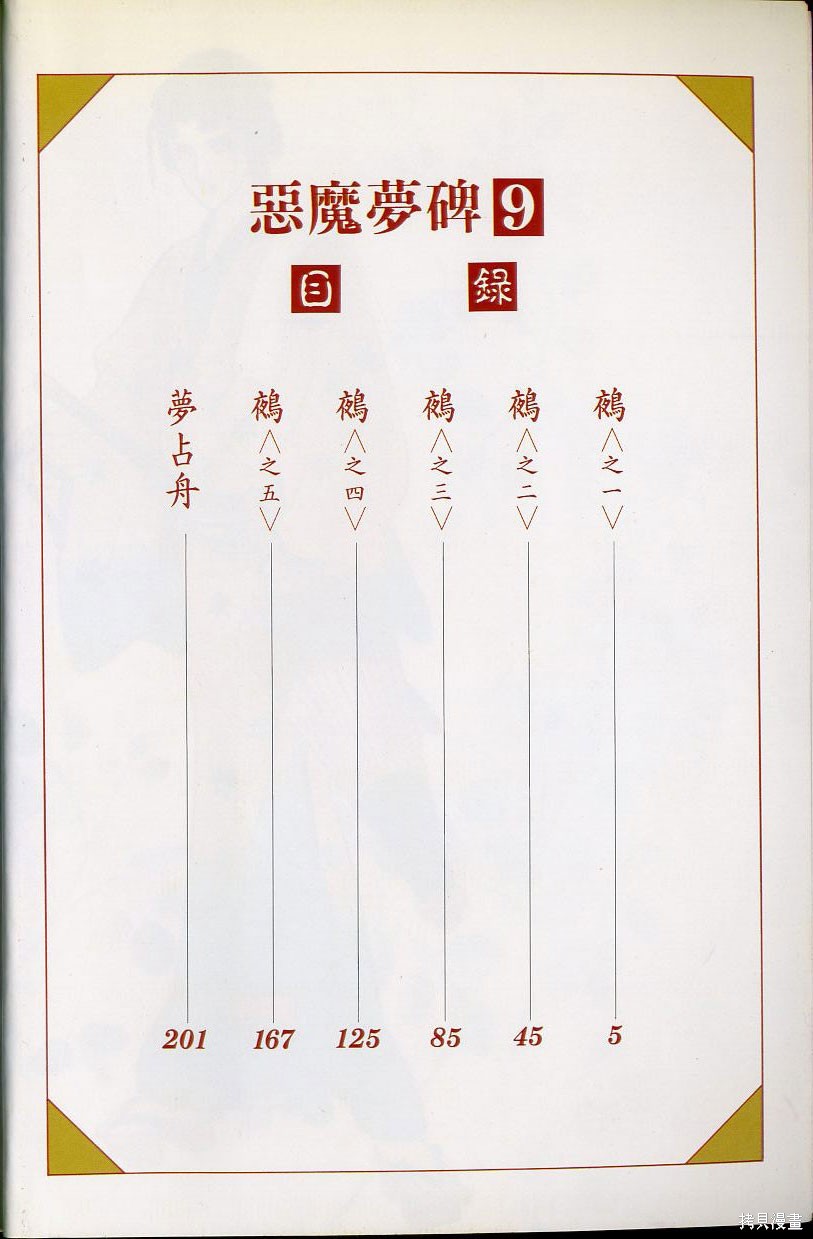 惡魔夢碑9
目錄
鵺〈之一〉5
鵺〈之二〉45
鵺〈之三〉85
鵺〈之四〉125
鵺〈之五〉167
夢占舟201
拷貝漫畫